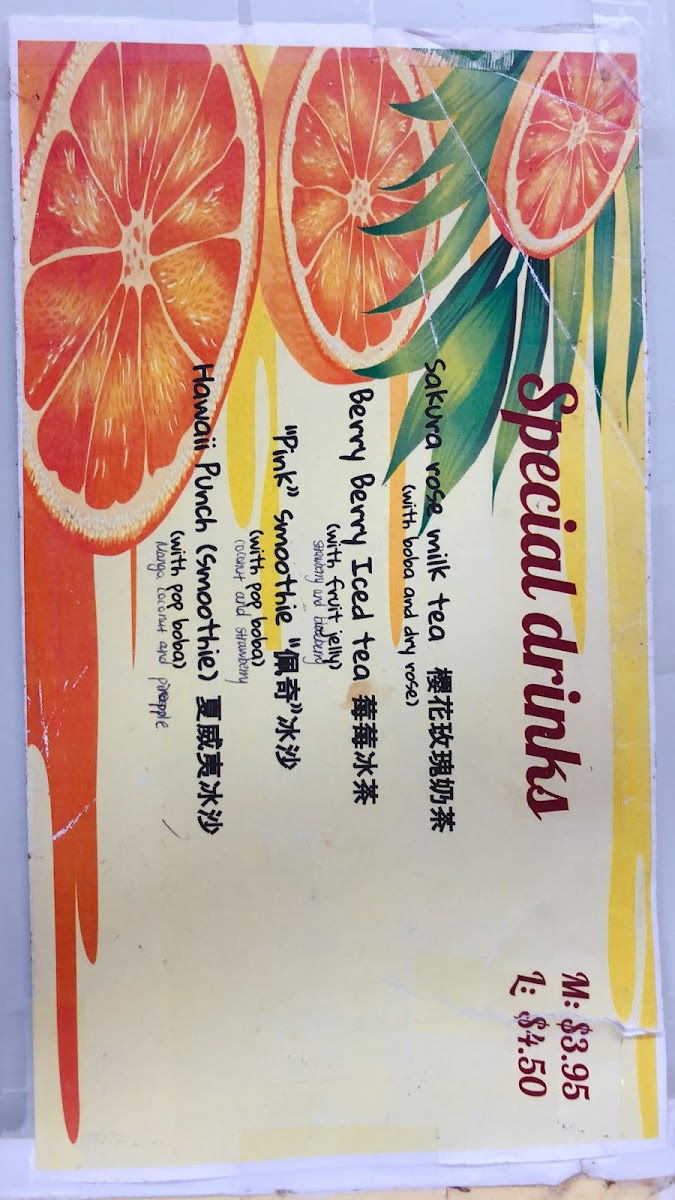 Special drinks
M: $3.95
L: $4.50
Sakura rose milk tea 櫻花玫瑰奶茶
(with boba and dry rose)
Berry Berry Iced tea 莓莓冰茶
(with fruit jelly)
strawberry and blueberry
"Pink" smoothie "佩奇"冰沙
(with pop boba)
coconut and strawberry
Hawaii Punch (smoothie) 夏威夷冰沙
(with pop boba)
Mango, coconut and pineapple